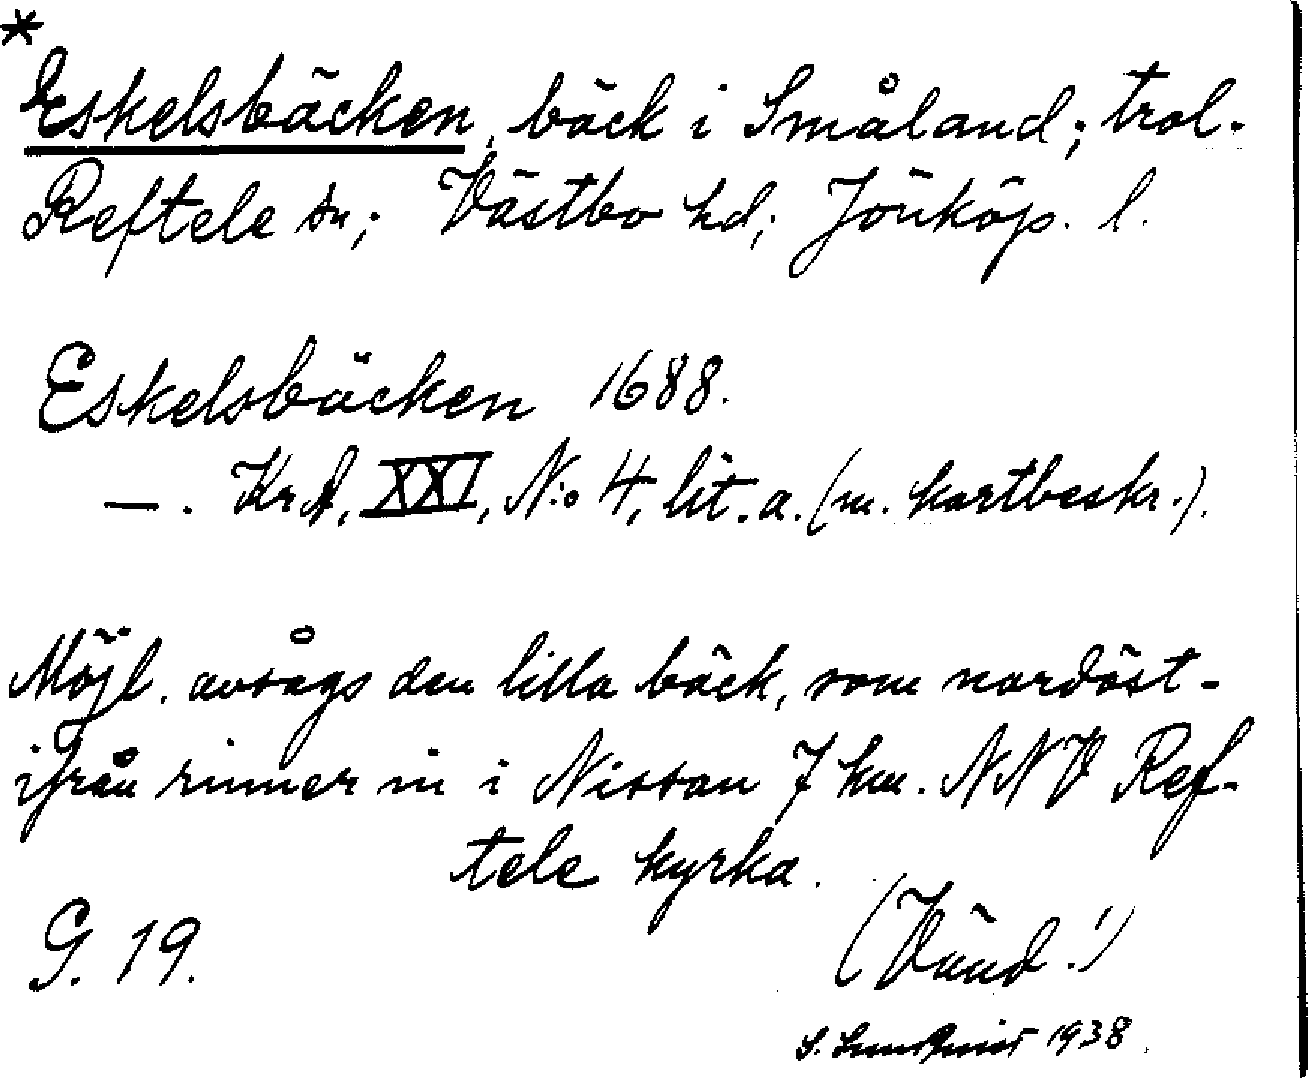 *
Eskelsbäcken, bäck i Småland; trol.
Reftele sn; Västbo hd; Jönköp. l.
Eskelsbäcken 1688.
—. Kr.A, XXI, N:o 4, lit. a. (m. kartbeskr.).
Möjl. avsågs den lilla bäck, som nordöst-
ifrån rinner in i Nissan 7 km. NNV Ref-
tele kyrka.
G. 19.
(Vänd!)
S. 1938.